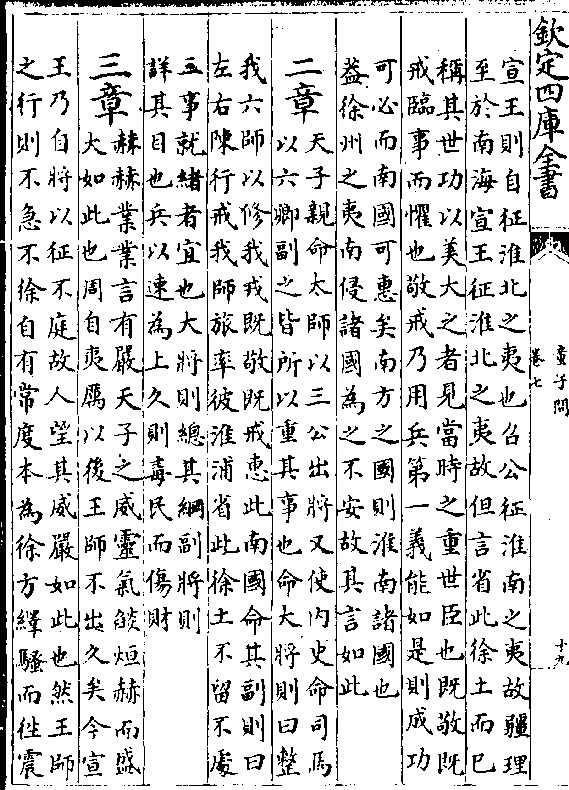 欽定四庫全書
童子問
卷七
十九
宣王則自征淮北之夷也召公征淮南之夷故疆理
至於南海宣王征淮北之夷故但言省此徐土而已
稱其世功以美大之者見當時之重世臣也既敬既
戒臨事而懼也敬戒乃用兵第一義能如是則成功
可必而南國可惠矣南方之國則淮南諸國也
葢徐州之夷南侵諸國為之不安故其言如此
二章
天子親命太師以三公出將又使内史命司馬
以六卿副之皆所以重其事也命大將則曰整
我六師以修我戎既敬既戒惠此南國命其副則曰
左右陳行戒我師旅率彼淮浦省此徐土不留不處
三事就緒者宜也大將則總其綱副將則
詳其目也兵以速為上久則毒民而傷財
三章
赫赫業業言有嚴天子之威靈氣燄烜赫而盛
大如此也周自夷厲以後王師不出久矣今宣
王乃自將以征不庭故人望其威嚴如此也然王師
之行則不急不徐自有常度本為徐方繹騷而徃震